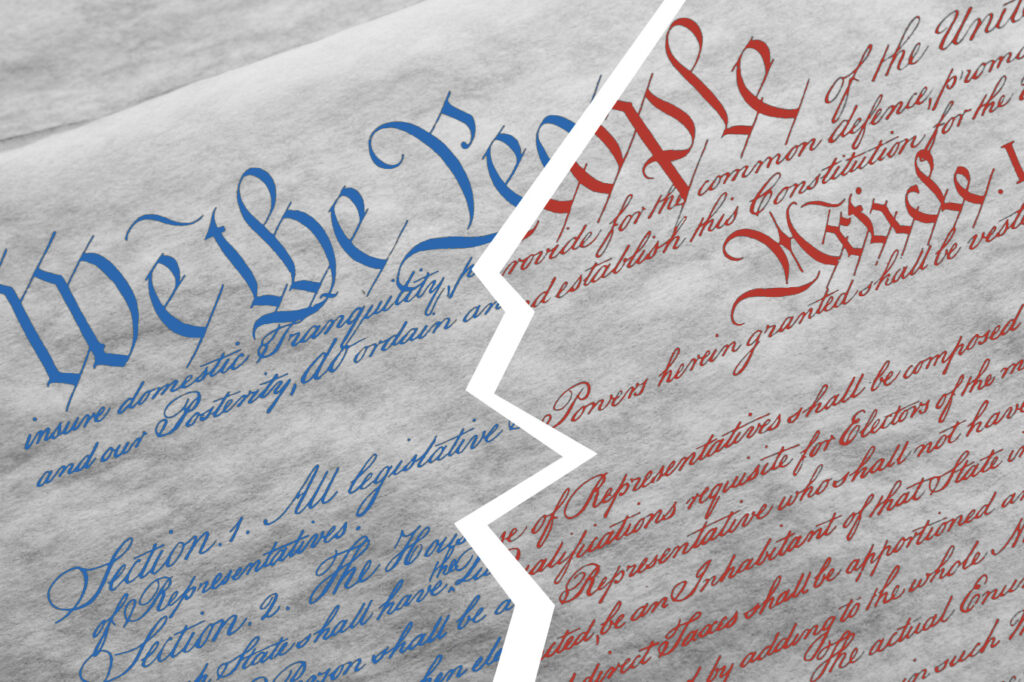 We the People of the Unit
insure domestic Tranquility, provide for the common defence, promo
and our Posterity, do ordain and establish this Constitution for the
Article. I
Section. 1. All legislative Powers herein granted shall be vest
of Representatives.
Section. 2. The Hou e of Representatives shall be composed
the
State shall have alifications requisite for Electors of the m
Person shall be a Representative who shall not have
hen ele cted, be an Inhabitant of that State in
direct Taxes shall be apportioned a
by adding to the whole N
The actual Enu
in such